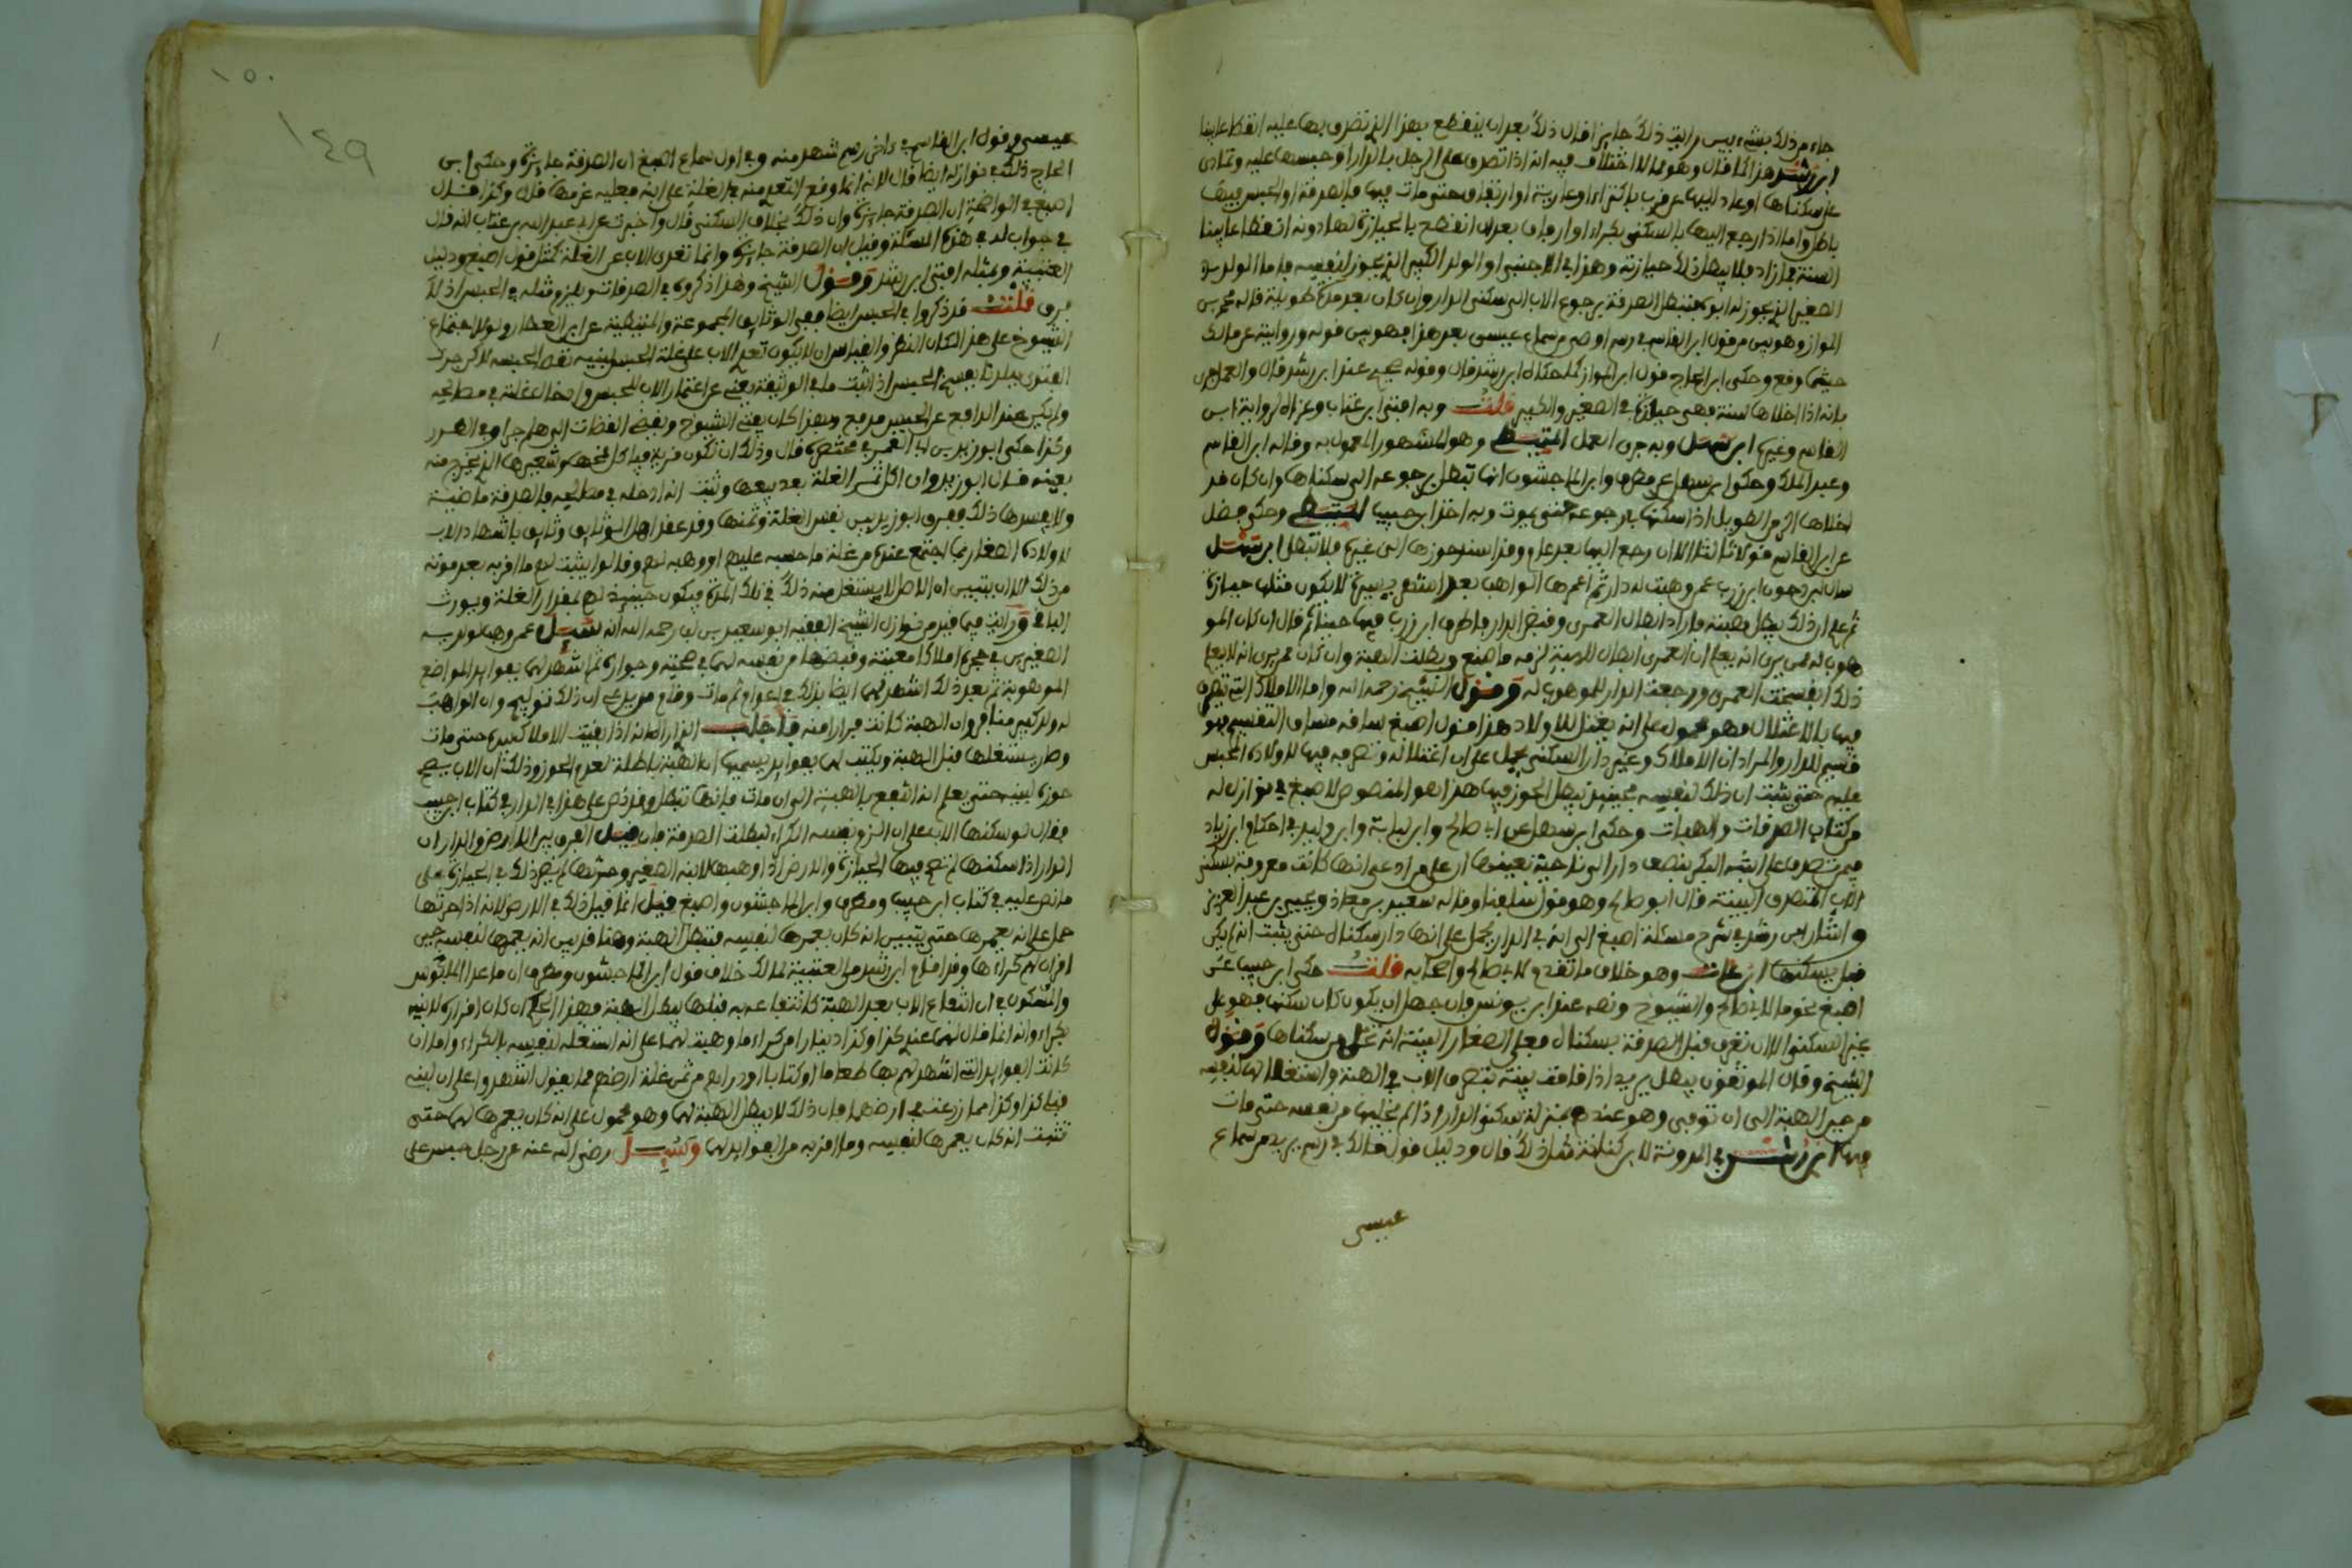 جاء من ذلك بشيء بين رايت ذلك جايزا قال ذلك بعد ان ينقطع بهذا الذي تصرف بها عليه انقطاعا بينا
ابن رشد هذا كما قال وهو مما لا اختلاف فيه انه اذا تصدق على الرجل بالدار او حبسها عليه وتمادى
على سكناها او عاد اليها عن قرب باكتراء او عارية او ارتفاق حتى مات فيها فالصدقة او الحبس فيها
باطل واما اذا رجع اليها بالسكنى بكراء او ارفاق بعد ان انقطع بالحيازة لها دونه انقطاعا بينا
السنة فما زاد فلا يبطل ذلك حيازته وهذا في الاجنبي او الولد الكبير الذي يحوز لنفسه فاما الولد
الصغير الذي يحوز له ابوه فتبطل الصدقة برجوع الاب الى سكنى الدار وان كان بعد مدة طويلة قاله محمد بن
المواز وهو بين من قول ابن القاسم في رسم اوصى من سماع عيسى بعد هذا فهو بين قوله وروايته عن مالك
حيثما وقع وحكى ابن الحاج قول ابن المواز كما حكاه ابن رشد قال وقوله صحيح عند ابن رشد قال والعمل جرى
بانه اذا اخلاها سنة فهي حيازة في الصغير والكبير قلت وبه افتى ابن عتاب وعزاه لرواية ابن
القاسم وغيره ابن سهل وبه جرى العمل المتيطي وهو المشهور المعمول به وقاله ابن القاسم
وعبد الملك وحكوا ابن سهل عن مطرف وابن الماجشون انها تبطل برجوعه الى سكناها وان كان قد
اخلاها الزمن الطويل اذا سكنها بالرجوع حتى يموت وبه اخذ ابن حبيب المتيطي وحكى فضل
عن ابن القاسم قولا ثالثا الا ان رجع اليها بعد عام وقد استد حوزها الى غيره فلا تبطل ابن سهل
سال ابن دحون ابن زرب عمن وهبت له دار ثم اعمرها الواهب بعد امتنع بيسير لا يكون مثلها حيازة
ثم علم ان ذلك يبطل هبته فاراد ابطال العمرى وقبض الدار فاطرق ابن زرب فيها حينا ثم قال ان كان المو
هوب له ممن يرى انه يعلم ان العمرى ابطال للهبة لزمه ما صنع وبطلت الهبة وان كان ممن يرى انه لا يعلم
ذلك انفسخت العمرى ورجعت الدار للموهوب له وقول الشيخ رحمه الله واما الاملاك التي تصرف
فيها بالاغتلال فهو محمول على انه يغتل للاولاد هذا قول اصبغ ساقه مساق التفسير
قسيم للدار والمراد ان الاملاك وغير دار السكنى يحمل على ان اغتلاله وتصرفه فيها لاولاده المحبس
عليهم حتى يثبت ان ذلك لنفسه فحينئذ يبطل الحوز فيها هذا هو المنصوص لاصبغ في نوازل له
من كتاب الصدقات والهبات وحكى ابن سهل عن ابي صالح وابن لبابة وابن وليد في احكام ابن زياد
فيمن تصدق على ابنته البكر بنصف دار الى ناحية بعينها ان على من ادعى انها كانت معروفة بسكنى
الاب المتصدق البينة قال ابو صالح وهو قول سلفنا وقاله سعيد بن معاذ ويحيى بن عبد العزيز
واشار ابن رشد في شرح مسئلة اصبغ الى انه في الدار يحمل على انها دار سكناه حتى يثبت انه لم يكن
قبل يسكنها ابن عات وهو خلاف ما تقدم لابي صالح واصحابه قلت حكى ابن حبيب عن
اصبغ نحو ما لابي صالح والشيوخ ونصه عند ابن يونس وان جهل ان يكون كان سكنها فهو على
غير السكنى الا ان تعرف قبل الصدقة بسكناه فعلى الصغار البينة انه تخلى من سكناها وقول
الشيخ وقال الموثقون يبطل يريد اذا قامت بينة بتصرف الاب في الهبة واستغلالها لنفسه
من حين الهبة الى ان توفي وهو عندهم بمنزلة سكنى الدار اذا لم يخليها من نفسه حتى مات
فيها ابن رشد في المدونة لابن كنانة مثل ذلك قال ودليل قول مالك في رسم يريد من سماع
عيسى
١٥٠
١٤٩
عيسى وقول ابن القاسم في رسم شهد منه وفي اول سماع اصبغ ان الصدقة جايزة وحكى ابن
الحاج ذلك في نوازله ايضا قال لانه انما وقع التعدي منه في الغلة على ابنه فعليه غرمها قال وكذا قال
اصبغ في الواضحة ان الصدقة جايزة وان ذلك بخلاف السكنى قال واخبرت عن ابي عبد الله بن عتاب انه قال
في جواب له في هذه المسئلة وقيل ان الصدقة جايزة وانما تعدى الاب عن الغلة كمثل قول اصبغ ودليل
العتبية وبمثله افتى ابن رشد وقول الشيخ وهذا ذكروه في الصدقات ويلزم مثله في الحبس اذ لا
فرق قلت قد ذكروا في الحبس ايضا ففي الوثايق المجموعة والمتيطية عن ابن العطار ولولا اجتماع
الشيوخ على هذا لكان النظر والقياس ان لا يكون تعدي الاب على غلة الحبس لبنيه نقض الحبسه لاكن جرت
الفتوى ببلدنا بفسخ الحبس اذا اثبت ما في الوثيقة يعني من اعتمار الاب المحبس وادخال غلته في مصالحه
ولم يكن عند الدافع عن الحبس مدفع وبهذا كان يفتي الشيوخ وبقضى القضات الى هلم جرا وفي الغرر
وكذا حكى ابو زيد بن ابي الغمر في مختصره قال وذلك ان تكون قرية فياكل قمحها وشعيرها الذي يخرج منه
بعينه قال ابو زيد وان اكل ثمن الغلة بعد بيعها وثبت انه ادخله في مصالحه فالصدقة ماضية
ولا يفسدها ذلك ففرق ابو زيد بين نفس الغلة وثمنها وقد عقد اهل الوثايق وثايق باشهاد الاب
لاولاده الصغار بما اجتمع عنده من غلة ما حبسه عليهم او وهبه لهم وقالوا يثبت لهم ما اقر به بعد موته
من ذلك الا ان يتبين ان الاصل لا يستغل منه ذلك في تلك المدة فيكون حينئذ لهم مقدار الغلة ويورث
الباقي ورايت فيما قيد من نوازل الشيخ الفقيه ابو سعيد بن لب رحمه الله انه سيل عمن وهب لولديه
الصغيرين في حجره املاكا معينة وقبضها من نفسه لهما في صحته وجوازه ثم اشهد لهما بفوايد المواضع
الموهوبة ثم بعد ذلك اشهد لهما ايضا بذلك في اعوام ثم مات وقام من يدعي ان ذلك توليج وان الواهب
له ولد كبير منافر وان الهبة كانت فرارا منه فاجاب الذي اراه انه اذا بقيت الاملاك بيده حتى مات
وصار يستغلها قبل الهبة ويكتب لهما بفوايد يسميها ان الهبة باطلة لعدم الحوز وذلك ان الاب يصح
حوزه لبنيه حتى يعلم انه انتفع بالهبة الى ان مات فانها تبطل وقد نص على هذا في الدار في كتاب ابن حبيب
فقال لو سكنها الاب على ان الزم نفسه الكراء لبطلت الصدقة فان قيل الفرق بين الارض والدار ان
الدار اذا سكنها لم تصح فيها الحيازة والارض اذا وهبها لابنه الصغير وحرثها لم يضر ذلك في الحيازة على
ما نص عليه في كتاب ابن حبيب ومطرف وابن الماجشون واصبغ قيل انما قيل ذلك في الارض لانه اذا حرثها
حمل على انه يعمرها حتى يتبين انه كان يعمرها لنفسه فتبطل الهبة وهنا قد بين انه يعمرها لنفسه حين
اقر ان لهم كراءها وقد اقام ابن رشد من العتبية لمالك خلاف قول ابن الماجشون ومطرف ان ما عدا الملبوس
والمسكون في ان انتفاع الاب بعد الهبة كانتفاعه به قبلها يبطل الهبة فهذا الحكم ان كان اقراره لابنيه
بكراء وانه انما قال لهما عندي كذا وكذا دينارا من كراء ما وهبت لهما على انه استغله لنفسه بالكراء واما ان
كانت الفوايد التي اشهد لهم بها طعاما او كتابا او دراهم من ثمن غلة ارضهم مما يقول اشهدوا على ان لبنيه
قبلي كذا وكذا مما زرعته في ارضهما فان ذلك لا يبطل الهبة لهما وهو محمول على انه كان يعمرها لهما حتى
تثبت انه كان يعمرها لنفسه وما اقر به من الفوايد لهما وسيل رضي الله عنه عن رجل حبس على